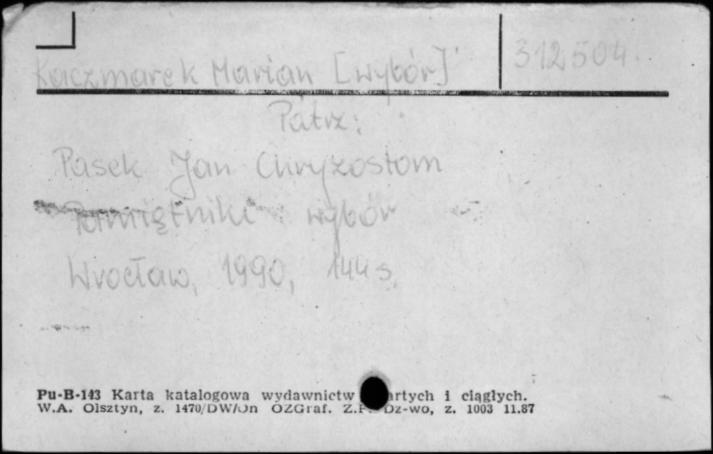 Kaczmarek Marian [wybór] 312504
Patrz:
Pasek Jan Chryzostom
Pamiętniki : wybór
Wrocław, 1990, 144 s.
Pu-B-143 Karta katalogowa wydawnictw artych i ciągłych.
W.A. Olsztyn, z. 1470/DW/On OZGraf. Z.P. Dz-wo, z. 1003 11.87